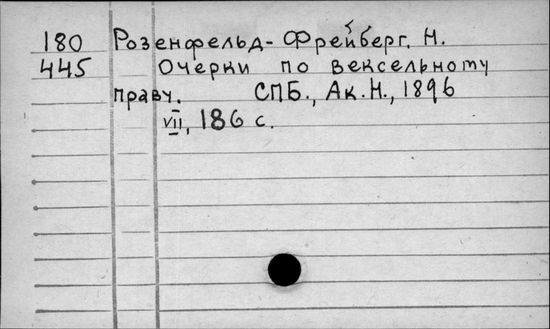 180 Розенфельд-Фрейберг, Н.
445 Очерки по вексельному
праву. СПБ., Ак. Н., 1896
VII, 186 с.